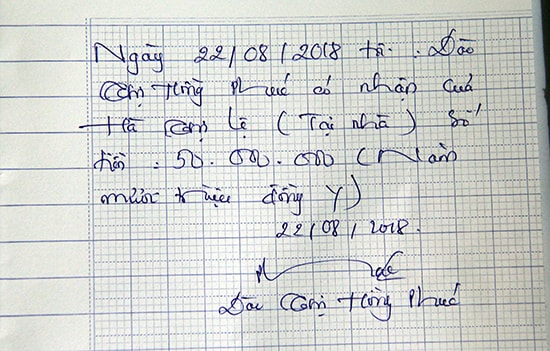 Ngày 22/08/2018 tôi : Đào
Thị Hồng Phước có nhận của
Hà Thị Lệ (Tại nhà) Số
tiền : 50.000.000 (Năm
mươi triệu đồng Y)
22/08/2018.
Đào Thị Hồng Phước